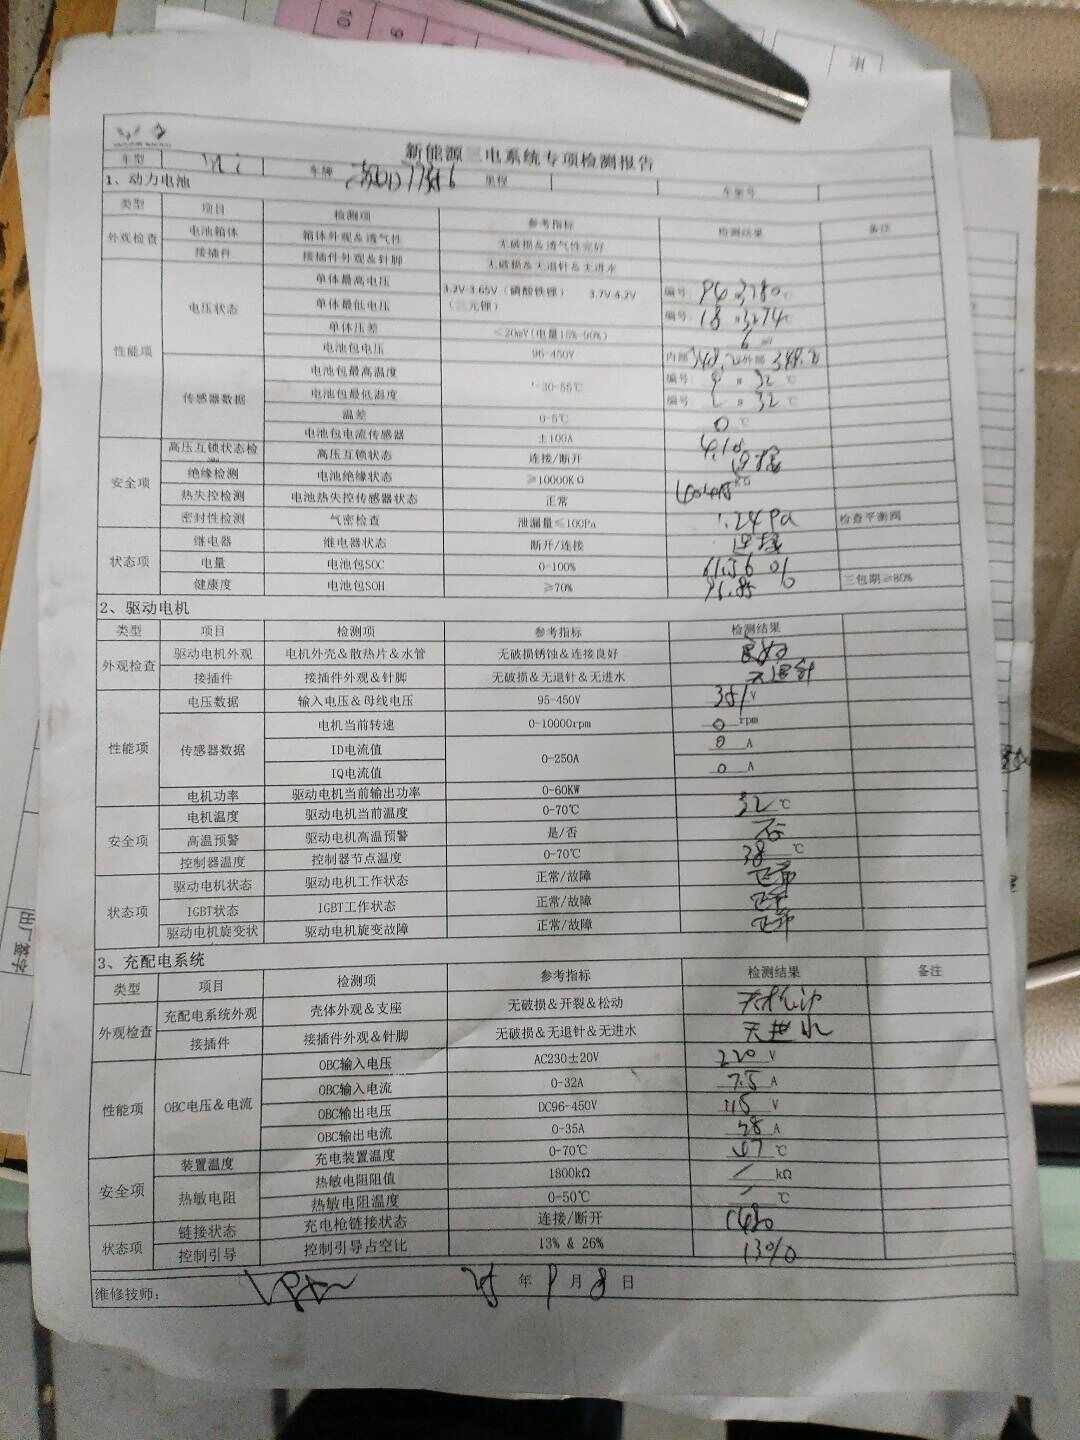 新能源三电系统专项检测报告
车型 车牌 里程 车架号
1、动力电池
类型 项目 检测项 参考指标 检测结果 备注
外观检查 电池箱体 箱体外观＆透气性 无破损＆透气性完好
接插件 接插件外观＆针脚 无破损＆无退针＆无进水
性能项 电压状态 单体最高电压 3.2V-3.65V（磷酸铁锂） 3.7V-4.2V（三元锂） 编号: 94 3280
单体最低电压 编号: 18 3274
单体压差 ＜20mV(电量15%-90%) 6 mV
电池包电压 96-450V 内部 348.2 外部 348.2
传感器数据 电池包最高温度 -30-55℃ 编号: 32 ℃
电池包最低温度 编号: 2 32 ℃
温差 0-5℃ 0 ℃
电池包电流传感器 ±100A
安全项 高压互锁状态检测 高压互锁状态 连接/断开 连接
绝缘检测 电池绝缘状态 ≥10000KΩ
热失控检测 电池热失控传感器状态 正常
密封性检测 气密检查 泄漏量≤100Pa 24Pa 检查平衡阀
状态项 继电器 继电器状态 断开/连接 连接
电量 电池包SOC 0-100%
健康度 电池包SOH ≥70% 96.85 三包期≥80%
2、驱动电机
类型 项目 检测项 参考指标 检测结果
外观检查 驱动电机外观 电机外壳＆散热片＆水管 无破损锈蚀＆连接良好 良好
接插件 接插件外观＆针脚 无破损＆无退针＆无进水 无退针
性能项 电压数据 输入电压＆母线电压 95-450V 351 V
传感器数据 电机当前转速 0-10000rpm 0 rpm
ID电流值 0-250A 0 A
IQ电流值 0 A
电机功率 驱动电机当前输出功率 0-60KW
安全项 电机温度 驱动电机当前温度 0-70℃ 32 ℃
高温预警 驱动电机高温预警 是/否 否
控制器温度 控制器节点温度 0-70℃ 38 ℃
状态项 驱动电机状态 驱动电机工作状态 正常/故障 正常
IGBT状态 IGBT工作状态 正常/故障 正常
驱动电机旋变状 驱动电机旋变故障 正常/故障 正常
3、充配电系统
类型 项目 检测项 参考指标 检测结果 备注
外观检查 充配电系统外观 壳体外观＆支座 无破损＆开裂＆松动 无松动
接插件 接插件外观＆针脚 无破损＆无退针＆无进水 无进水
性能项 OBC电压＆电流 OBC输入电压 AC230±20V 220 V
OBC输入电流 0-32A 7.5 A
OBC输出电压 DC96-450V V
OBC输出电流 0-35A A
安全项 装置温度 充电装置温度 0-70℃ 47 ℃
热敏电阻 热敏电阻阻值 1800kΩ / kΩ
热敏电阻温度 0-50℃ / ℃
状态项 链接状态 充电枪链接状态 连接/断开
控制引导 控制引导占空比 13% & 26% 13%
维修技师: 25 年 9 月 8 日